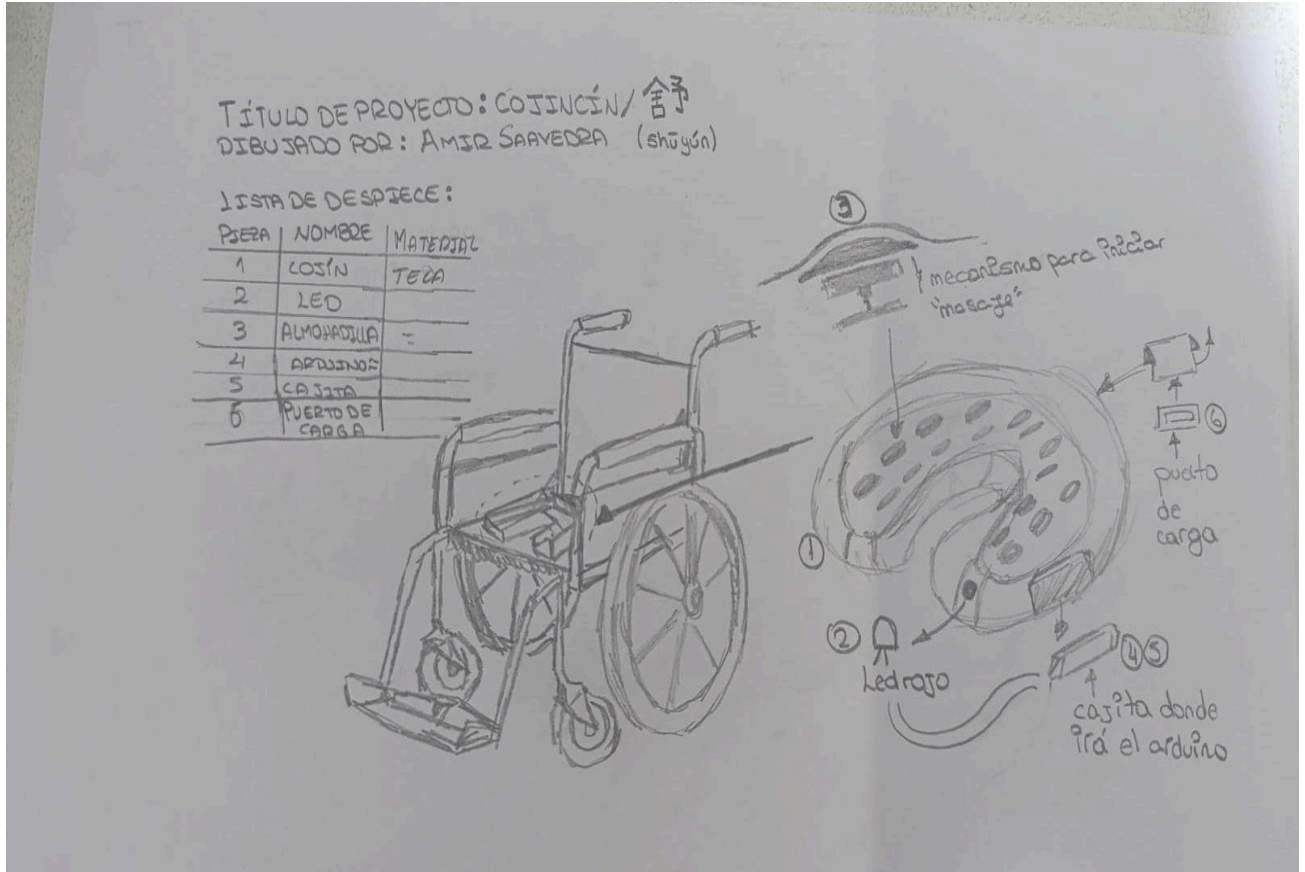 TÍTULO DE PROYECTO: COJINCÍN/ 舍予
DIBUJADO POR: AMIR SAAVEDRA (shūyún)
LISTA DE DESPIECE:
PIEZA NOMBRE MATERIAL
1 COJÍN TELA
2 LED
3 ALMOHADILLA =
4 ARDUINO =
5 CAJITA
6 PUERTO DE CARGA
3
mecanismo para iniciar
"masaje"
6
puerto
de
carga
1
2
Led rojo
4 5
cajita donde
irá el arduino